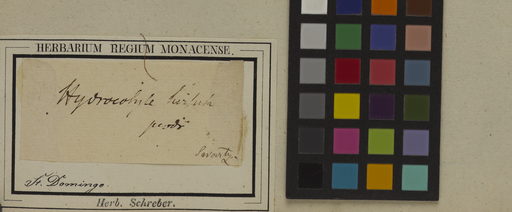 HERBARIUM REGIUM MONACENSE.
Hydrocotyle hirsuta
Swartz.
St. Domingo.
Herb. Schreber.